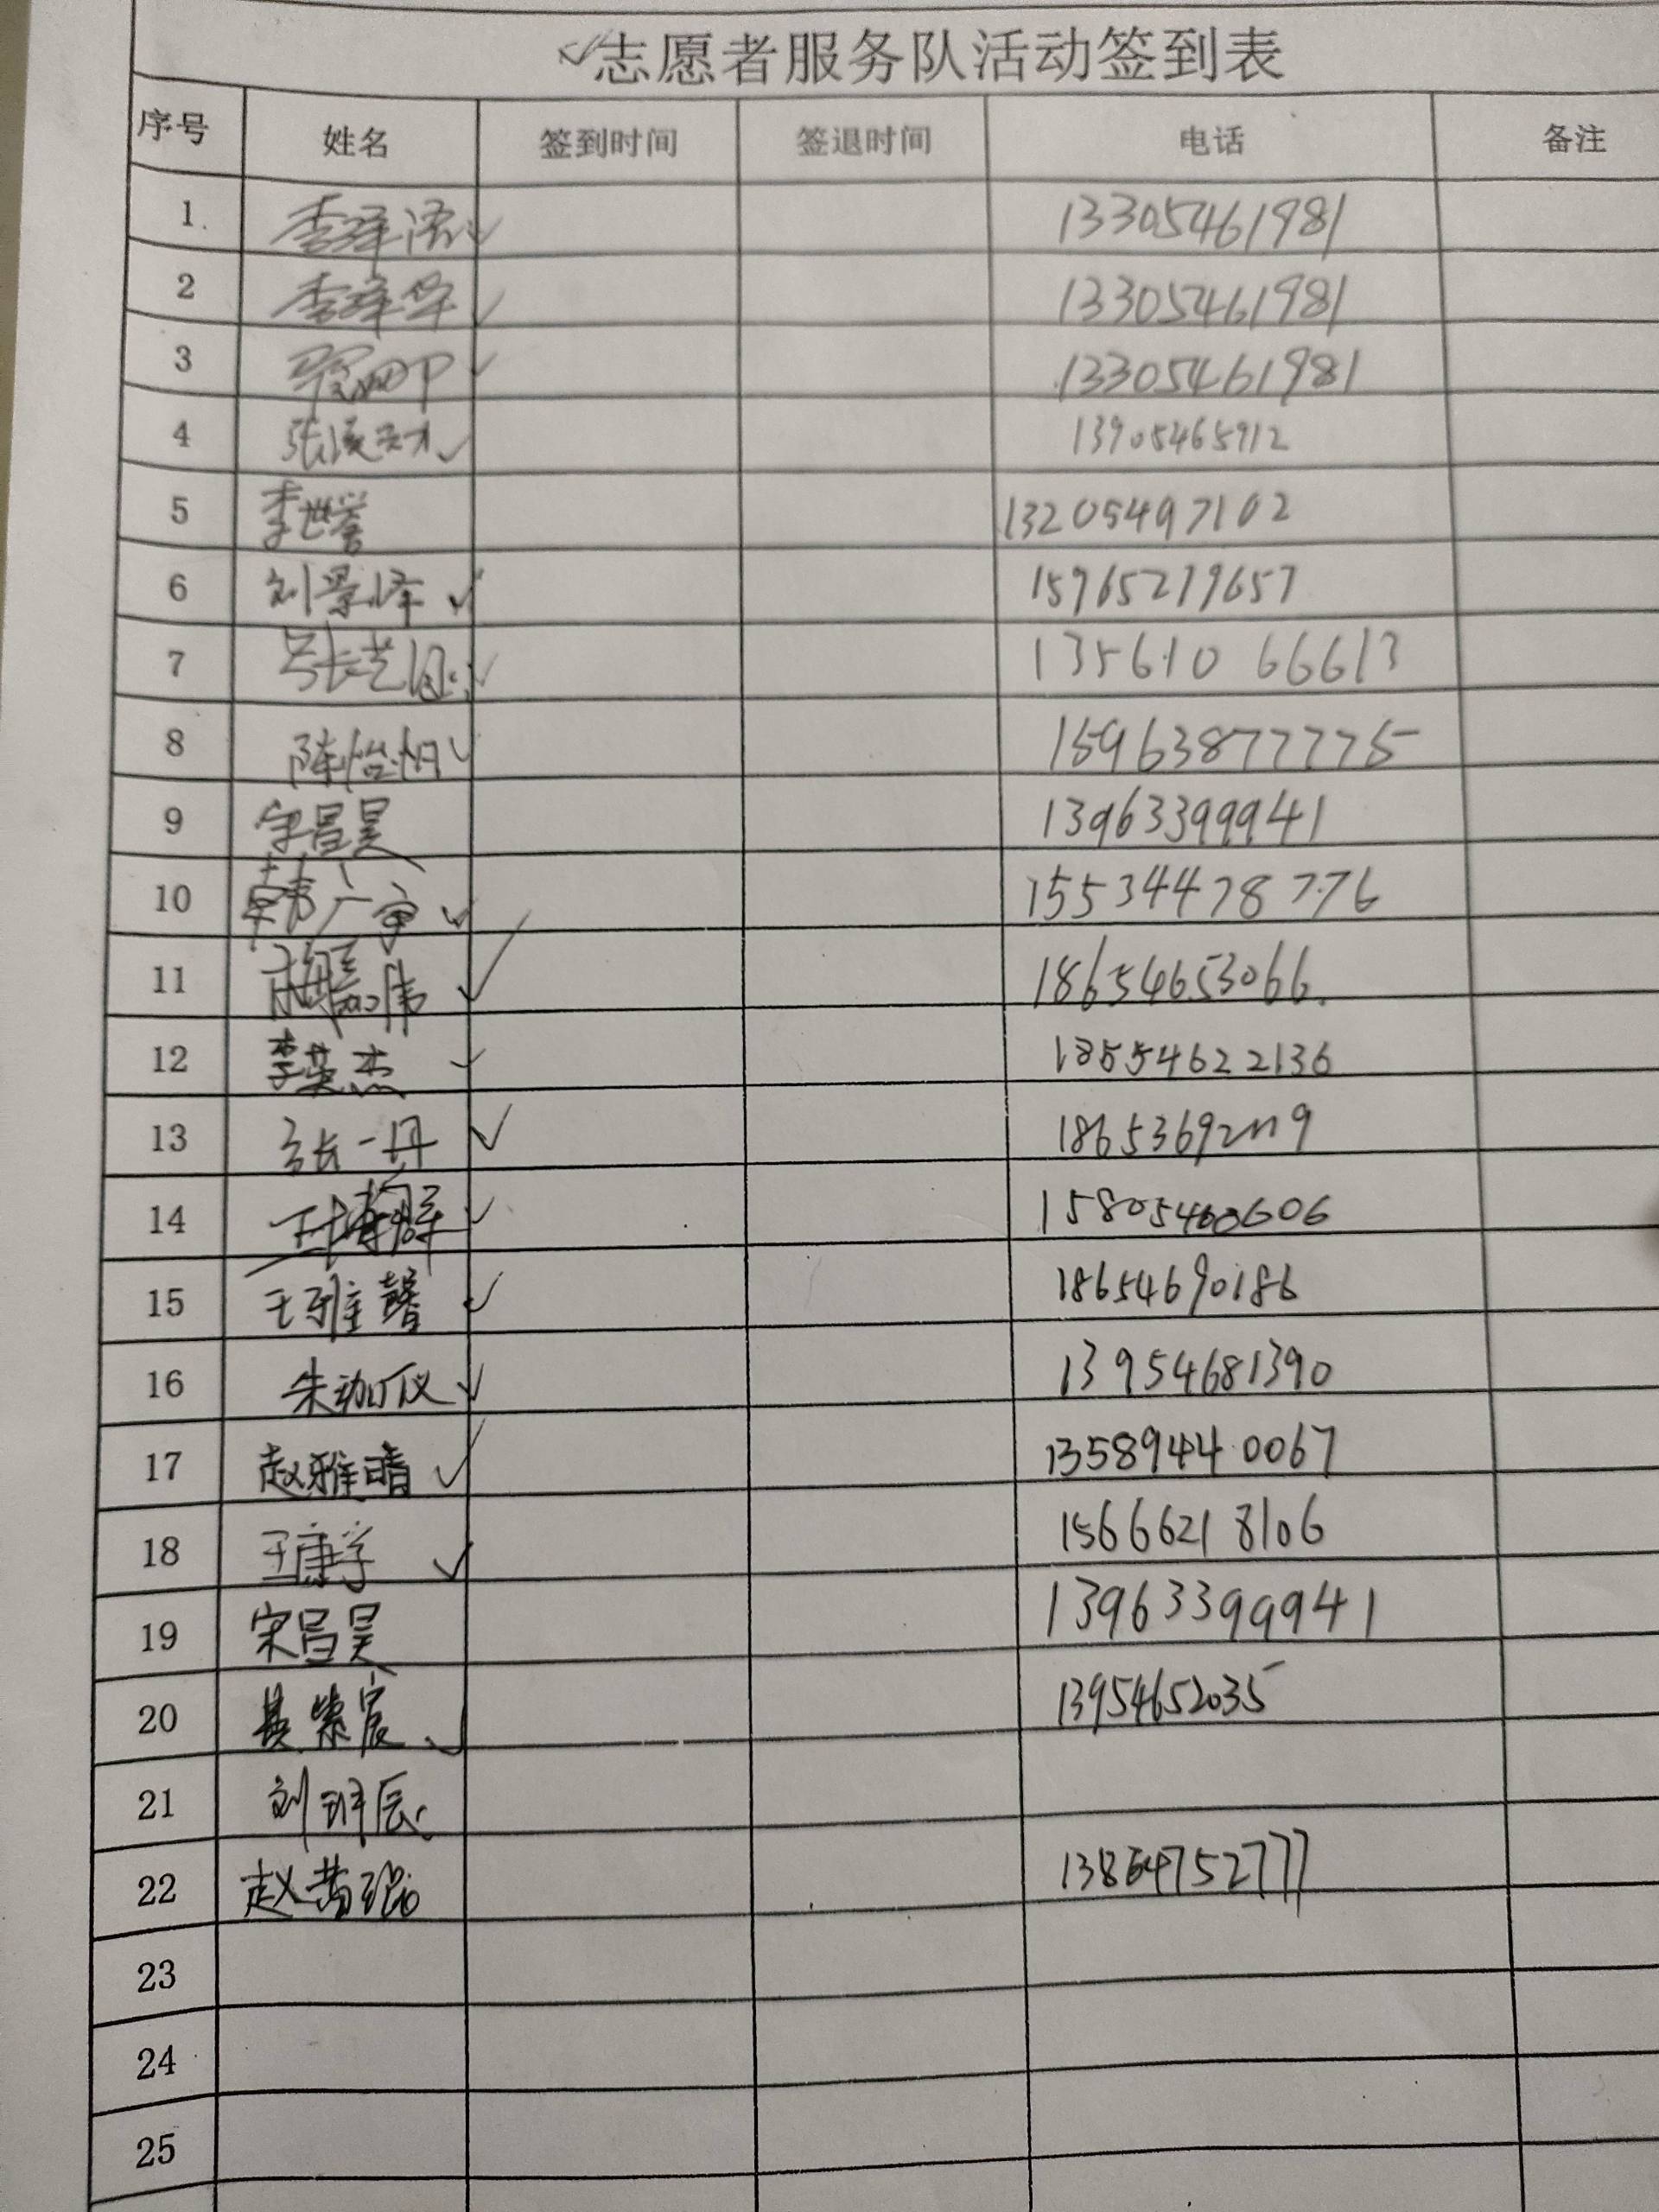 志愿者服务队活动签到表
序号 姓名 签到时间 签退时间 电话 备注
1 13305461981
2 13305461981
3 13305461981
4 13905465912
5 李世誉 13205497102
6 刘景泽 15965279657
7 13561066613
8 陈怡 15963877775
9 宋昌昊 13963399941
10 15534478776
11 18654653066
12 李英杰 18554622136
13 张一丹 18653692119
14 王博 15805460606
15 王雅馨 18654690186
16 朱珈仪 13954681390
17 赵雅晴 13589440067
18 王康 15666218106
19 宋昌昊 13963399941
20 綦紫宸 13954652035
21 刘玥辰
22 赵 13864752777
23
24
25